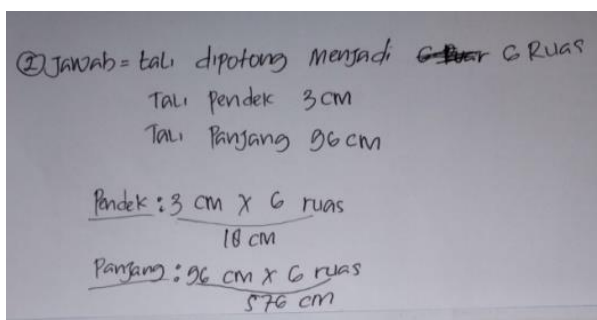 ② Jawab = tali dipotong menjadi 6 Ruas
Tali Pendek 3 cm
Tali Panjang 96 cm
Pendek : 3 cm x 6 ruas
18 cm
Panjang : 96 cm x 6 ruas
576 cm